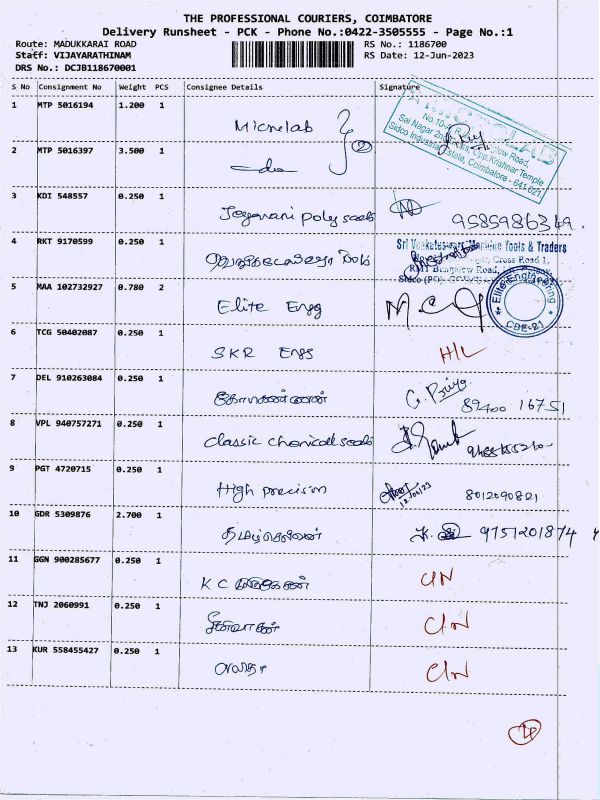 THE PROFESSIONAL COURIERS, COIMBATORE
Delivery Runsheet - PCK - Phone No.:0422-3505555 - Page No.:1
Route: MADUKKARAI ROAD RS No.: 1186700
Staff: VIJAYARATHINAM RS Date: 12-Jun-2023
DRS No.: DCJB118670001
S No Consignment No Weight PCS Consignee Details Signature
1 MTP 5016194 1.200 1 Micrelab
No 10-
Sai Nagar 2nd Opp.Krishnar Temple
Sidco Industrial Estate, Coimbatore - 641 021
2 MTP 5016397 3.500 1 do 2
3 KDI 548557 0.250 1 Jaganani poly seals
4 RKT 9170599 0.250 1
Sri Venkateswara Machine Tools & Traders
Cross Road 1,
Bungalow Road,
5 MAA 102732927 0.780 2 Elite Engg
Elite Engineering
CBE-21
6 TCG 50402087 0.250 1 SKR Engg H/L
7 DEL 910263084 0.250 1 G. Priya
89400 16751
8 VPL 940757271 0.250 1 classic chemical seals
9 PGT 4720715 0.250 1 High precism 8012090821
12/06/23
10 GDR 5309876 2.700 1 தமிழ்செல்வன் 9751201874
11 GGN 900285677 0.250 1 K C C/N
12 TNJ 2060991 0.250 1 C/N
13 KUR 558455427 0.250 1 C/N